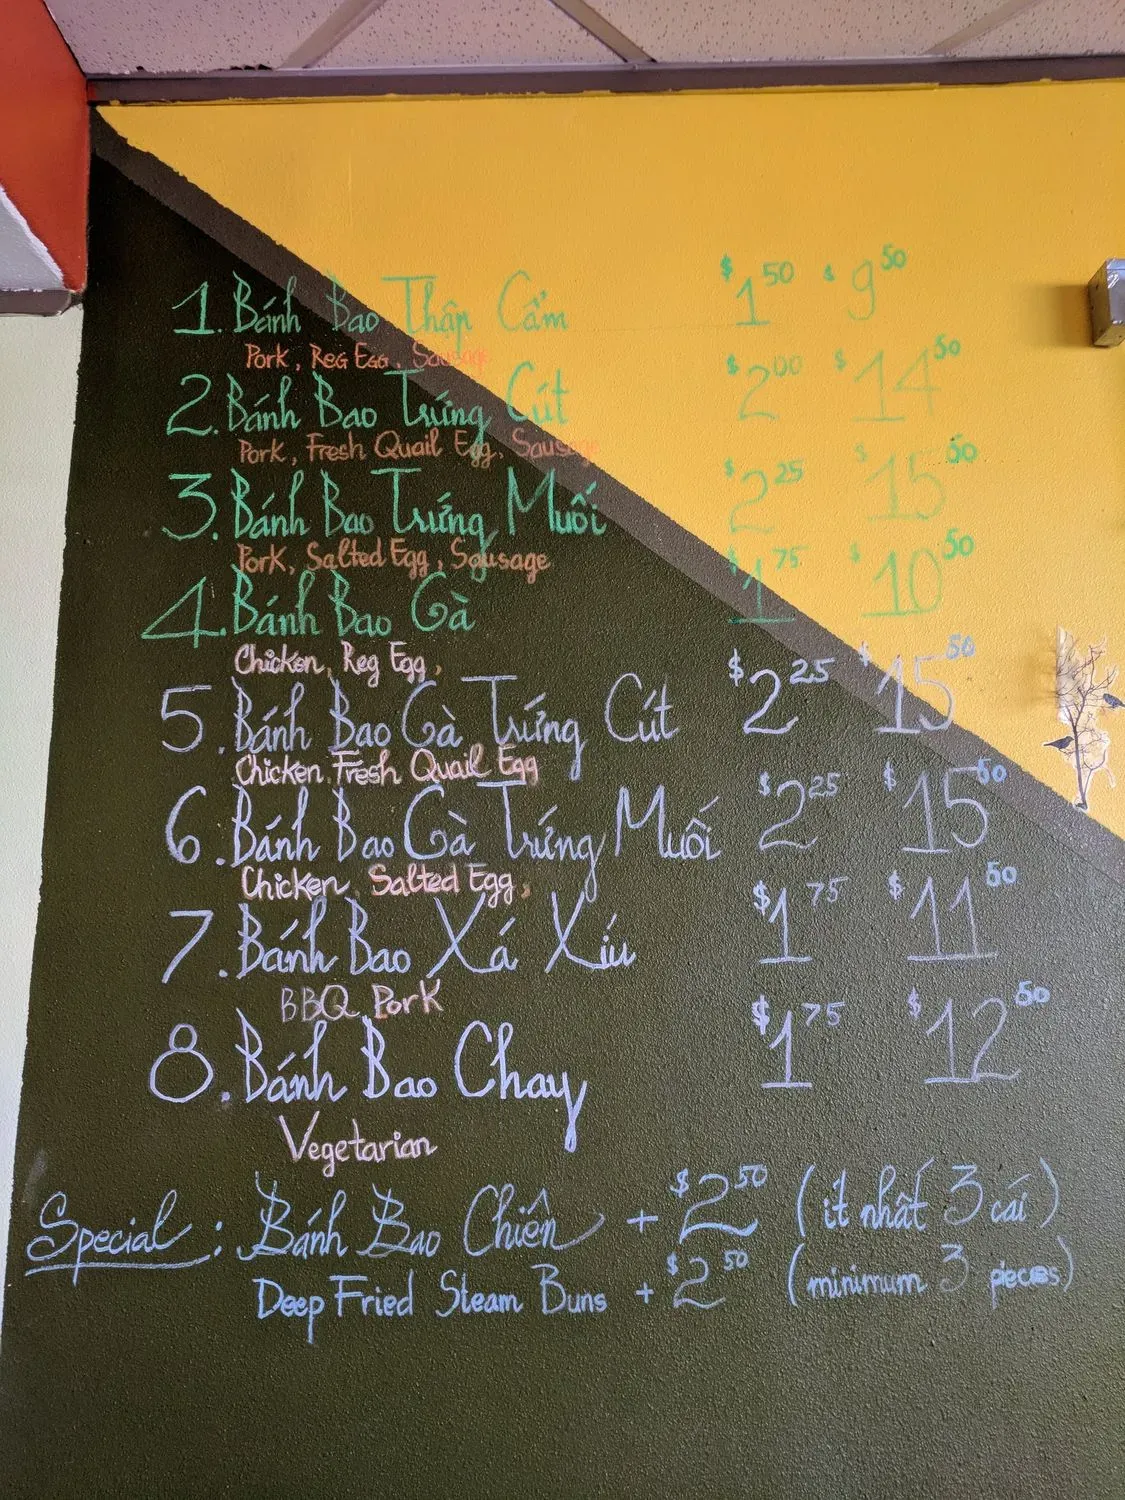 1. Bánh Bao Thập Cẩm $1.50 $9.50
Pork, Reg Egg, Sausage
2. Bánh Bao Trứng Cút $2.00 $14.50
Pork, Fresh Quail Egg, Sausage
3. Bánh Bao Trứng Muối $2.25 $15.50
Pork, Salted Egg, Sausage
4. Bánh Bao Gà $1.75 $10.50
Chicken, Reg Egg,
5. Bánh Bao Gà Trứng Cút $2.25 $15.50
Chicken, Fresh Quail Egg
6. Bánh Bao Gà Trứng Muối $2.25 $15.50
Chicken, Salted Egg,
7. Bánh Bao Xá Xíu $1.75 $11.50
BBQ Pork
8. Bánh Bao Chay $1.75 $12.50
Vegetarian
Special: Bánh Bao Chiên + $2.50 (ít nhất 3 cái)
Deep Fried Steam Buns + $2.50 (minimum 3 pieces)